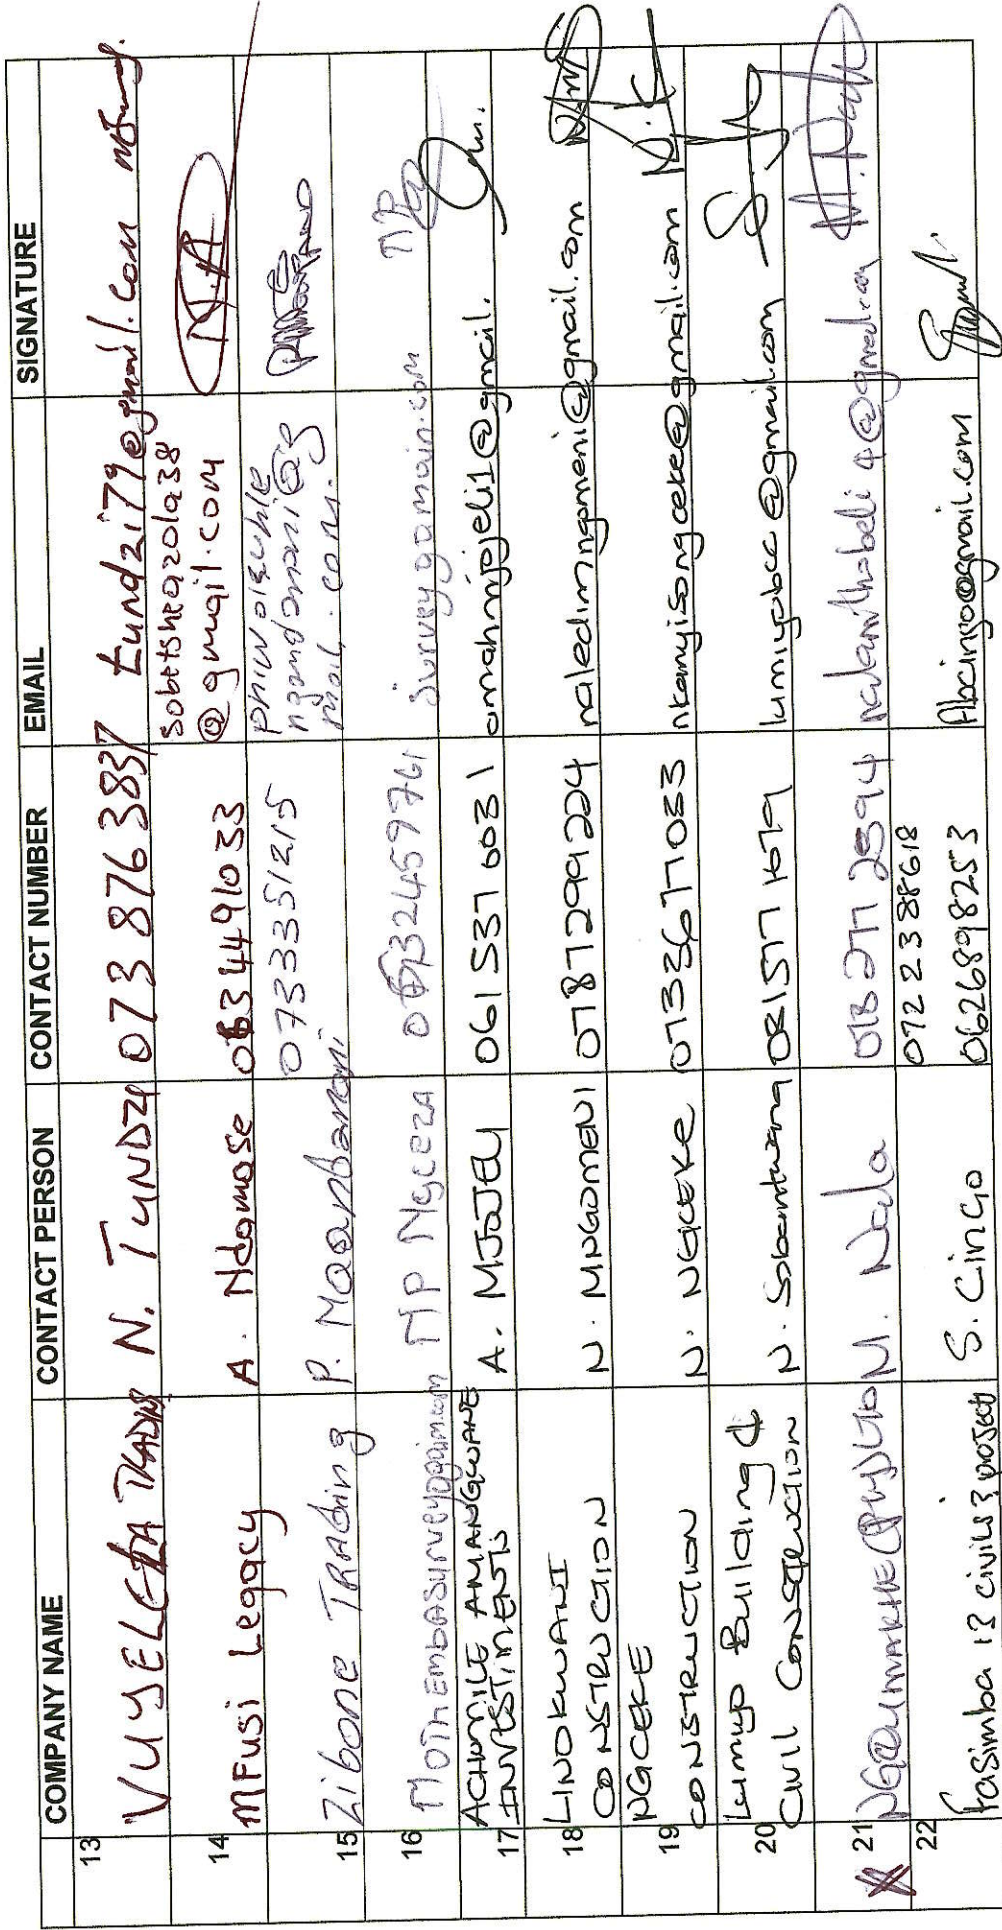 COMPANY NAME CONTACT PERSON CONTACT NUMBER EMAIL SIGNATURE
13 VUYELELA TRADING N. TUNDZI 073 876 3837 tundzi79@gmail.com
14 MFusi Legacy A. Ndamase 063 449 1033 sobetsheazola38
@gmail.com N.A
15 Zibone TRADING P. Maqanbamani 0733351215 phiwolesuhle
ngamdomani@g
mail.com.
16 MP Ngceza 0632459761 surveyqamain.com MP
17 ACHUMILE AMANGWANE
INVESTIMENTS A. MJOJELI 061 537 6031 amahmjojeli1@gmail.
18 LINOKWANI
CONSTRUCTION N. MNGOMENI 0787299224 naledimngomeni@gmail.com
19 NGCEKE
CONSTRUCTION N. NGCEKE 0733677033 nkamyisongceke@gmail.com N.K
20 Lumyo Building &
CIVIL CONSTRUCTION N. Sobantwana 081577 1679 lumiyobcc@gmail.com
21 (PTY) LTD M. Ndala 078 277 2594
0722388618
22 Fasimba 13 civils & project S. Cingo 0626898253 Abcingo@gmail.com